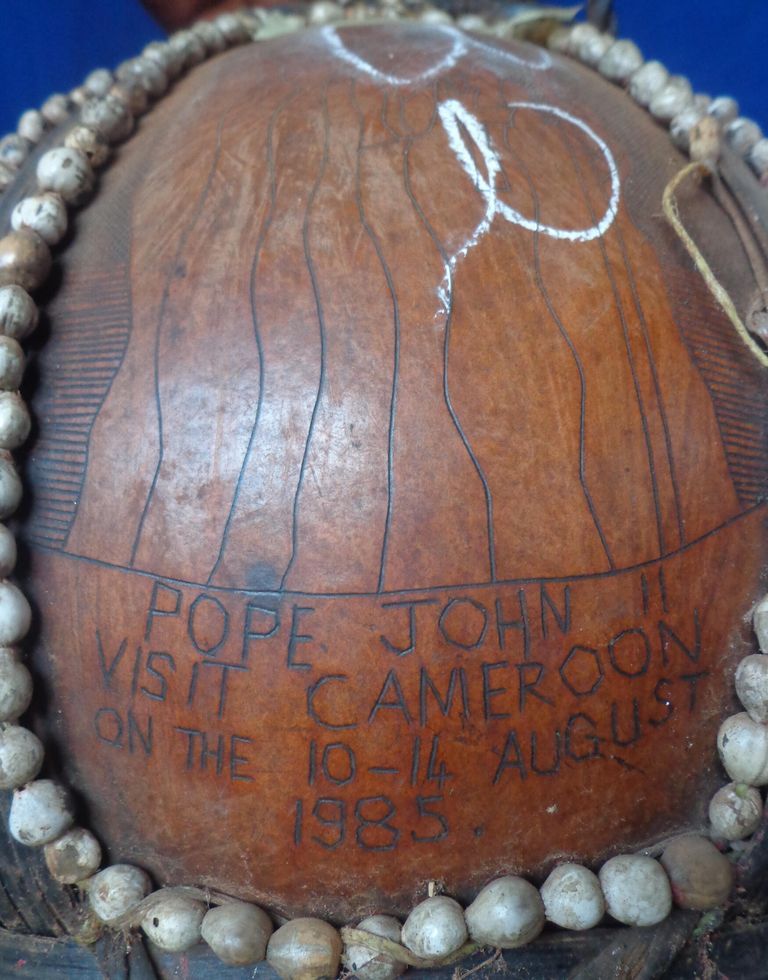 POPE JOHN II
VISIT CAMEROON
ON THE 10-14 AUGUST
1985.